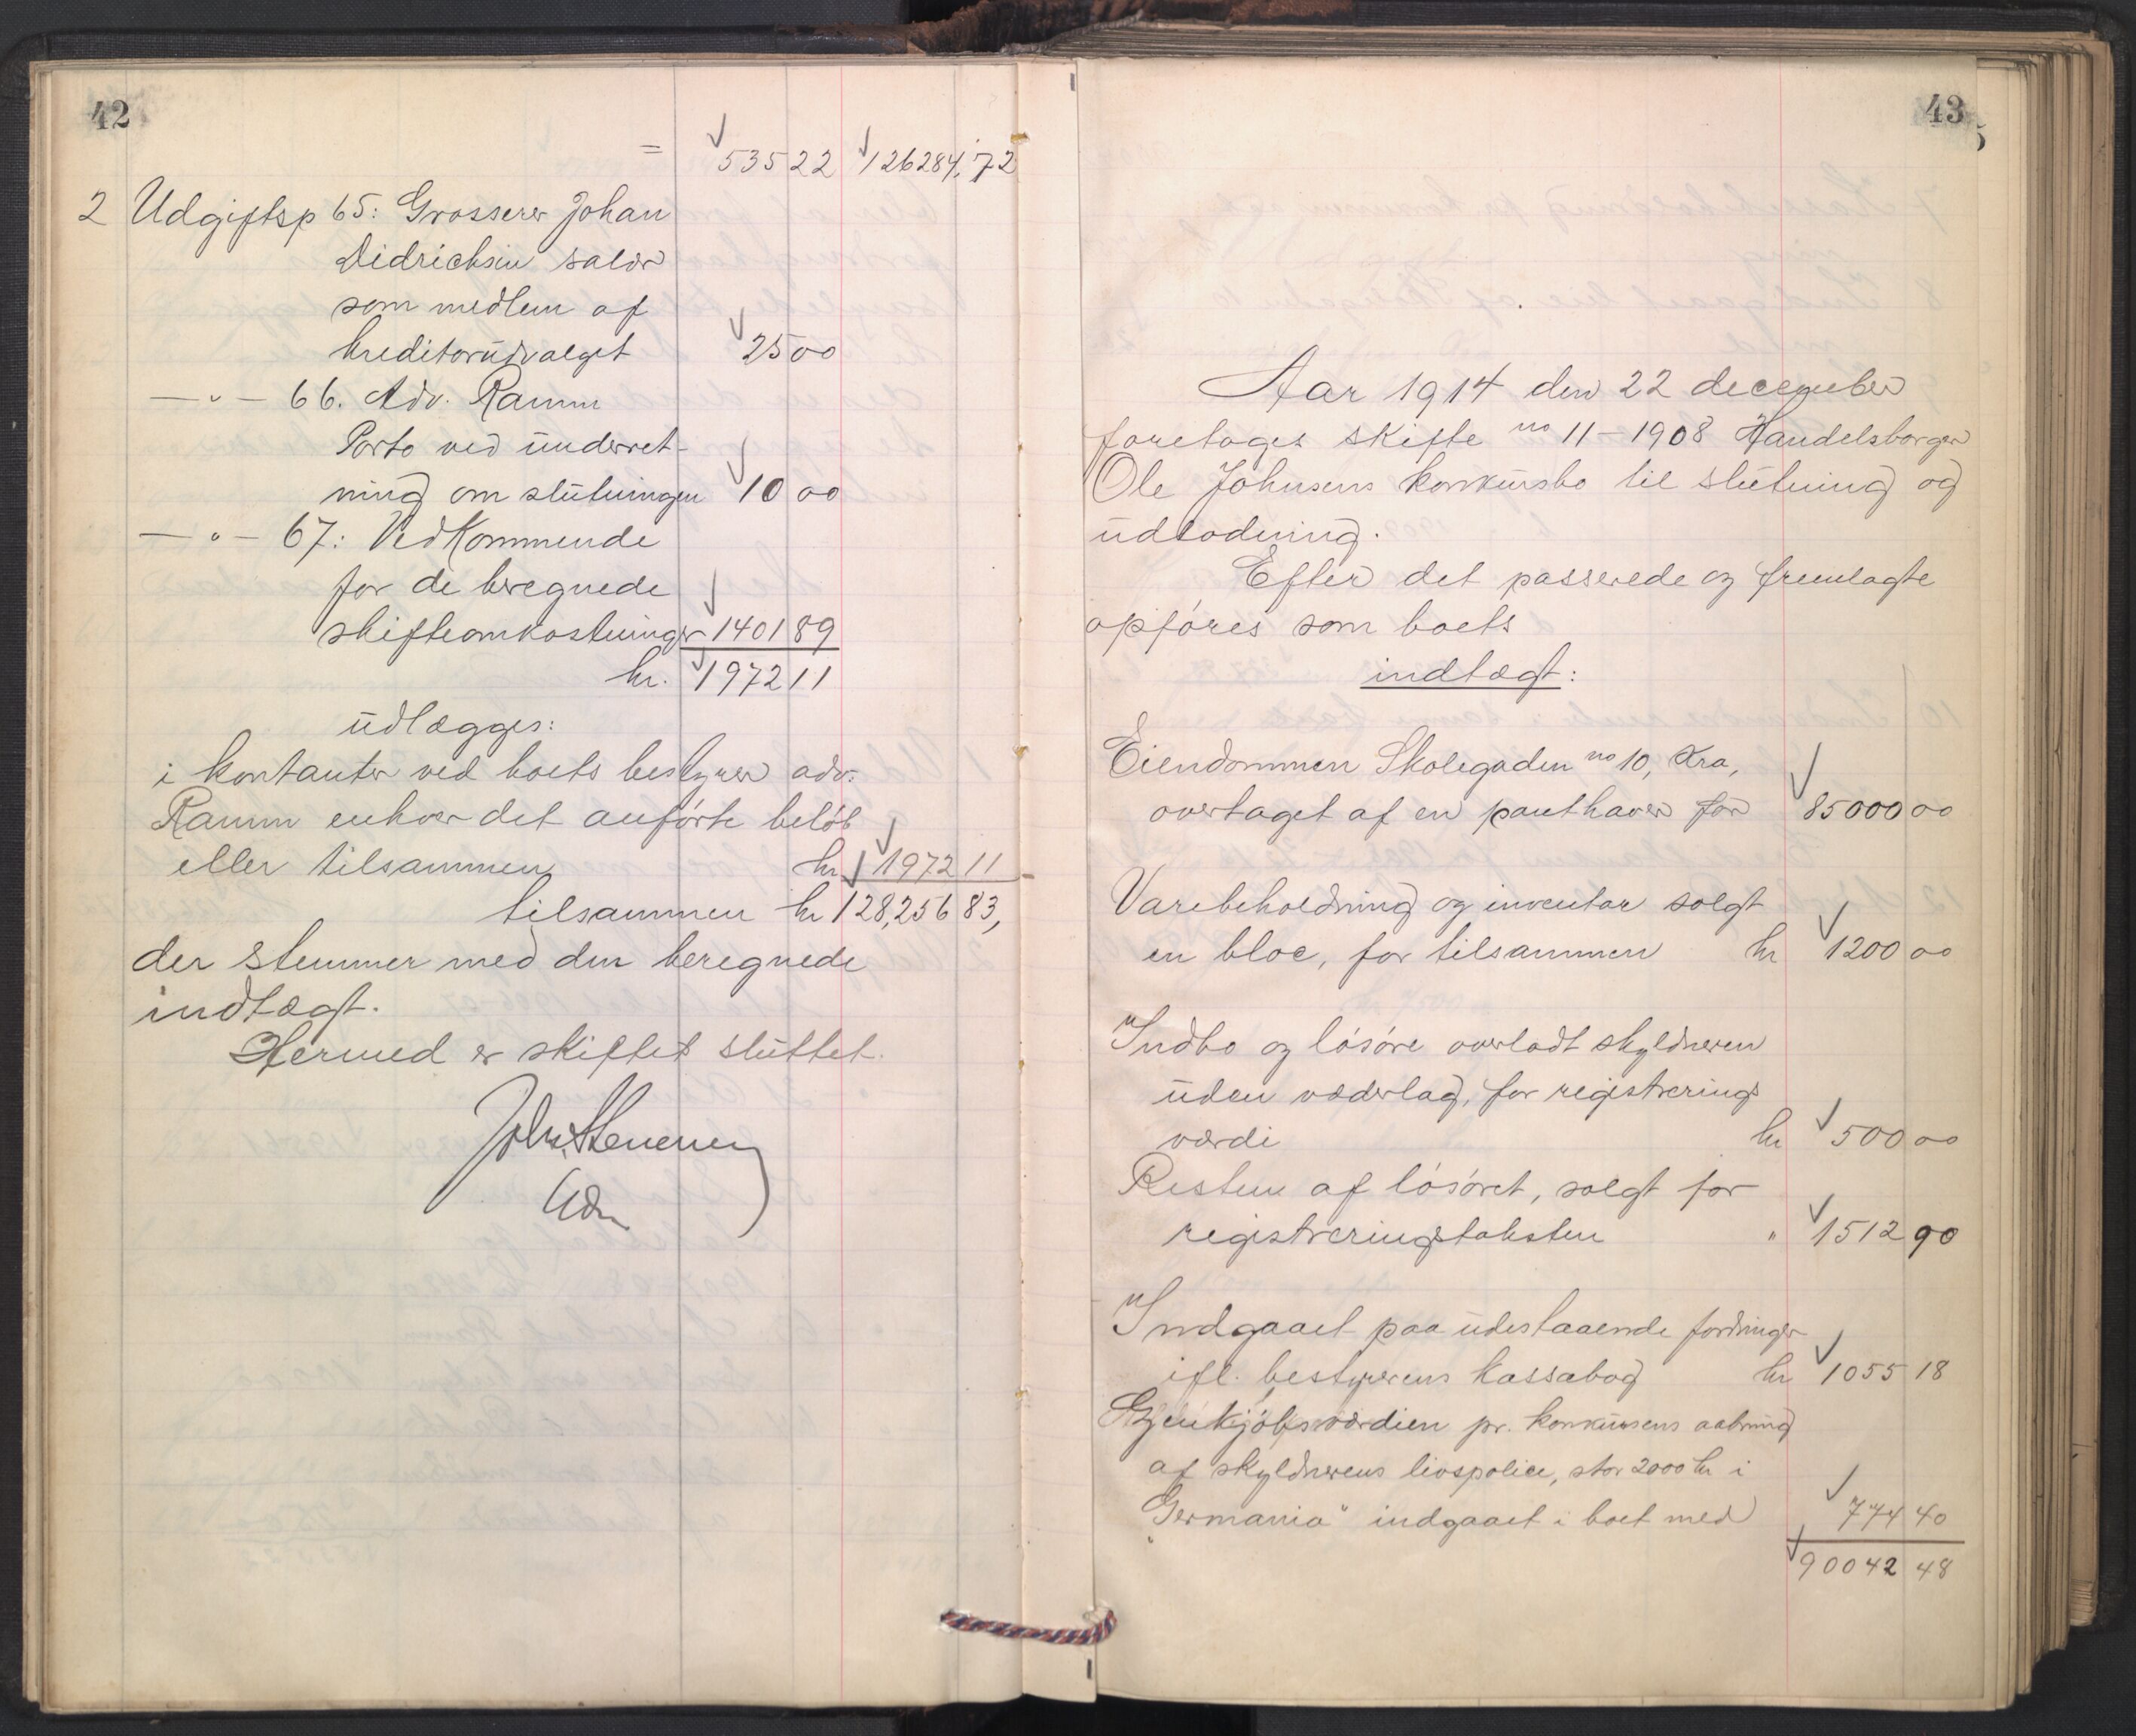 42
= 535 22 126284,72
2 Udgiftsp 65: Grosserer Johan
Didrichsen salær
som medlem af
kreditorudvalget 25 00
— " — 66. Adv. Ramm
Porto ved underret-
ning om slutningen 10 00
— " — 67: Vedkommende
for de beregnede
skifteomkostninger 1401 89
kr. 1972 11
udlægges:
i kontanter ved boets bestyrer adv.
Ramm enhver det anførte beløb
eller tilsammen kr 1972 11
tilsammen kr 128,256 83,
der stemmer med den beregnede
indtægt.
Hermed er skiftet sluttet.
43
Aar 1914 den 22 december
foretoges skifte no 11-1908 Handelsborger
Ole Johnsens konkursbo til slutning og
udlodning.
Efter det passerede og fremlagte
opføres som boets
indtægt:
Eiendommen Skolegaden no 10, Kra,
overtaget af en panthaver for 85000 00
Varebeholdning og inventar solgt
en bloc, for tilsammen kr 1200 00
Indbo og løsøre overladt skyldneren
uden vederlag, for registrerings
værdi kr 500 00
Resten af løsøret, solgt for
registreringstaksten " 1512 90
Indgaaet paa udestaaende fordringer
ifl. bestyrerens kassabog kr 1055 18
Gjenkjøbsværdien pr. konkursens aabning
af skyldnerens livspolice, stor 2000 kr i
"Germania" indgaaet i boet med 774 40
90042 48